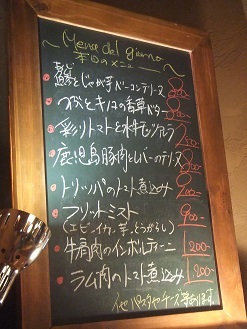 Menu del giorno
本日のメニュー
鯵とじゃが芋、ベーコンテリーヌ 800
つぶとキノコの香草バター 800
彩りトマトと水牛モッツァレラ
鹿児島豚肉とレバーのテリーヌ 800
トリッパのトマト煮込み 800
フリットミスト 900
(エビ、イカ、芋、とうがらし)
牛肩肉のインボルティーニ 1200
ラム肉のトマト煮込み 1200
他 パスタやチーズ等あります。